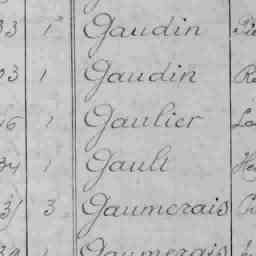 33 1 Gaudin
03 1 Gaudin
16 1 Gaulier
34 1 Gault
3 Gaumerais
1 Gaumerais